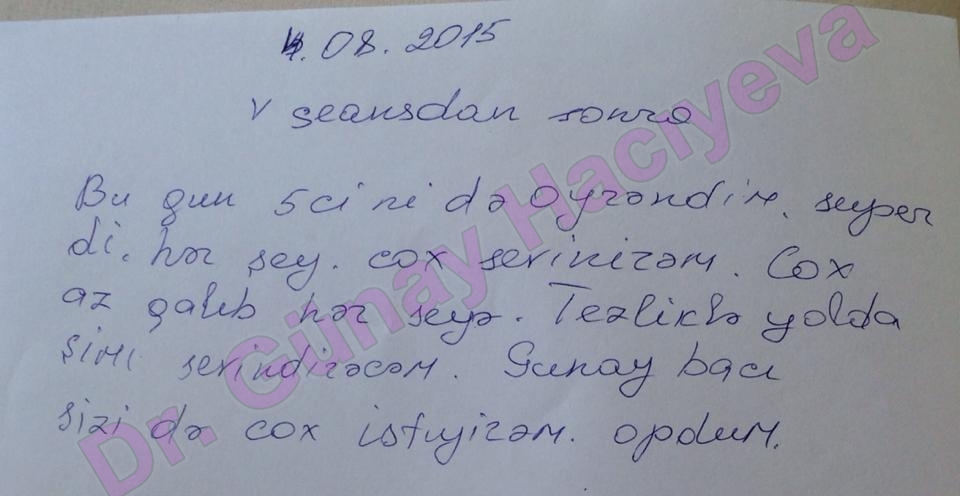 4.08.2015
V seansdan sonra
Bu gun 5ci ni də oyrəndim. seyper
di. hər şey. cox sevinirəm. Cox
az qalıb hər şeyə. Tezliklə yolda
şımı sevindirəcəm. Gunay bacı
sizi də cox istıyirəm. opdum.
Dr. Günay Hacıyeva